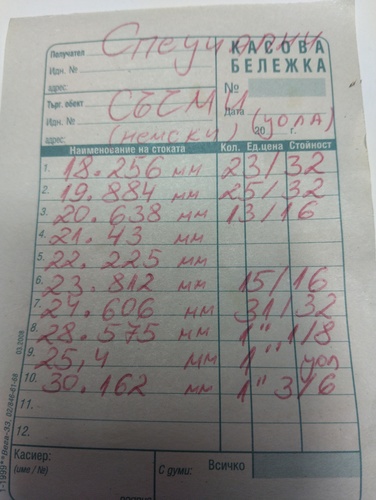 Получател
КАСОВА
БЕЛЕЖКА
Идн. №
адрес:
№
Търг. обект
СЪСМИ
Дата
Идн. №
20 г.
адрес:
(немски) (уола)
Наименование на стоката Кол. Ед.цена Стойност
1. 18.256 мм 23/32
2. 19.884 мм 25/32
3. 20.638 мм 13/16
4. 21.43 мм
5. 22.225 мм
6. 23.812 мм 15/16
7. 24.606 мм 31/32
8. 28.575 мм 1" 1/8
9. 25,4 мм 1" уол
10. 30.162 мм 1" 3/6
11.
12.
Касиер:
(име / №)
С думи: Всичко
03.2009